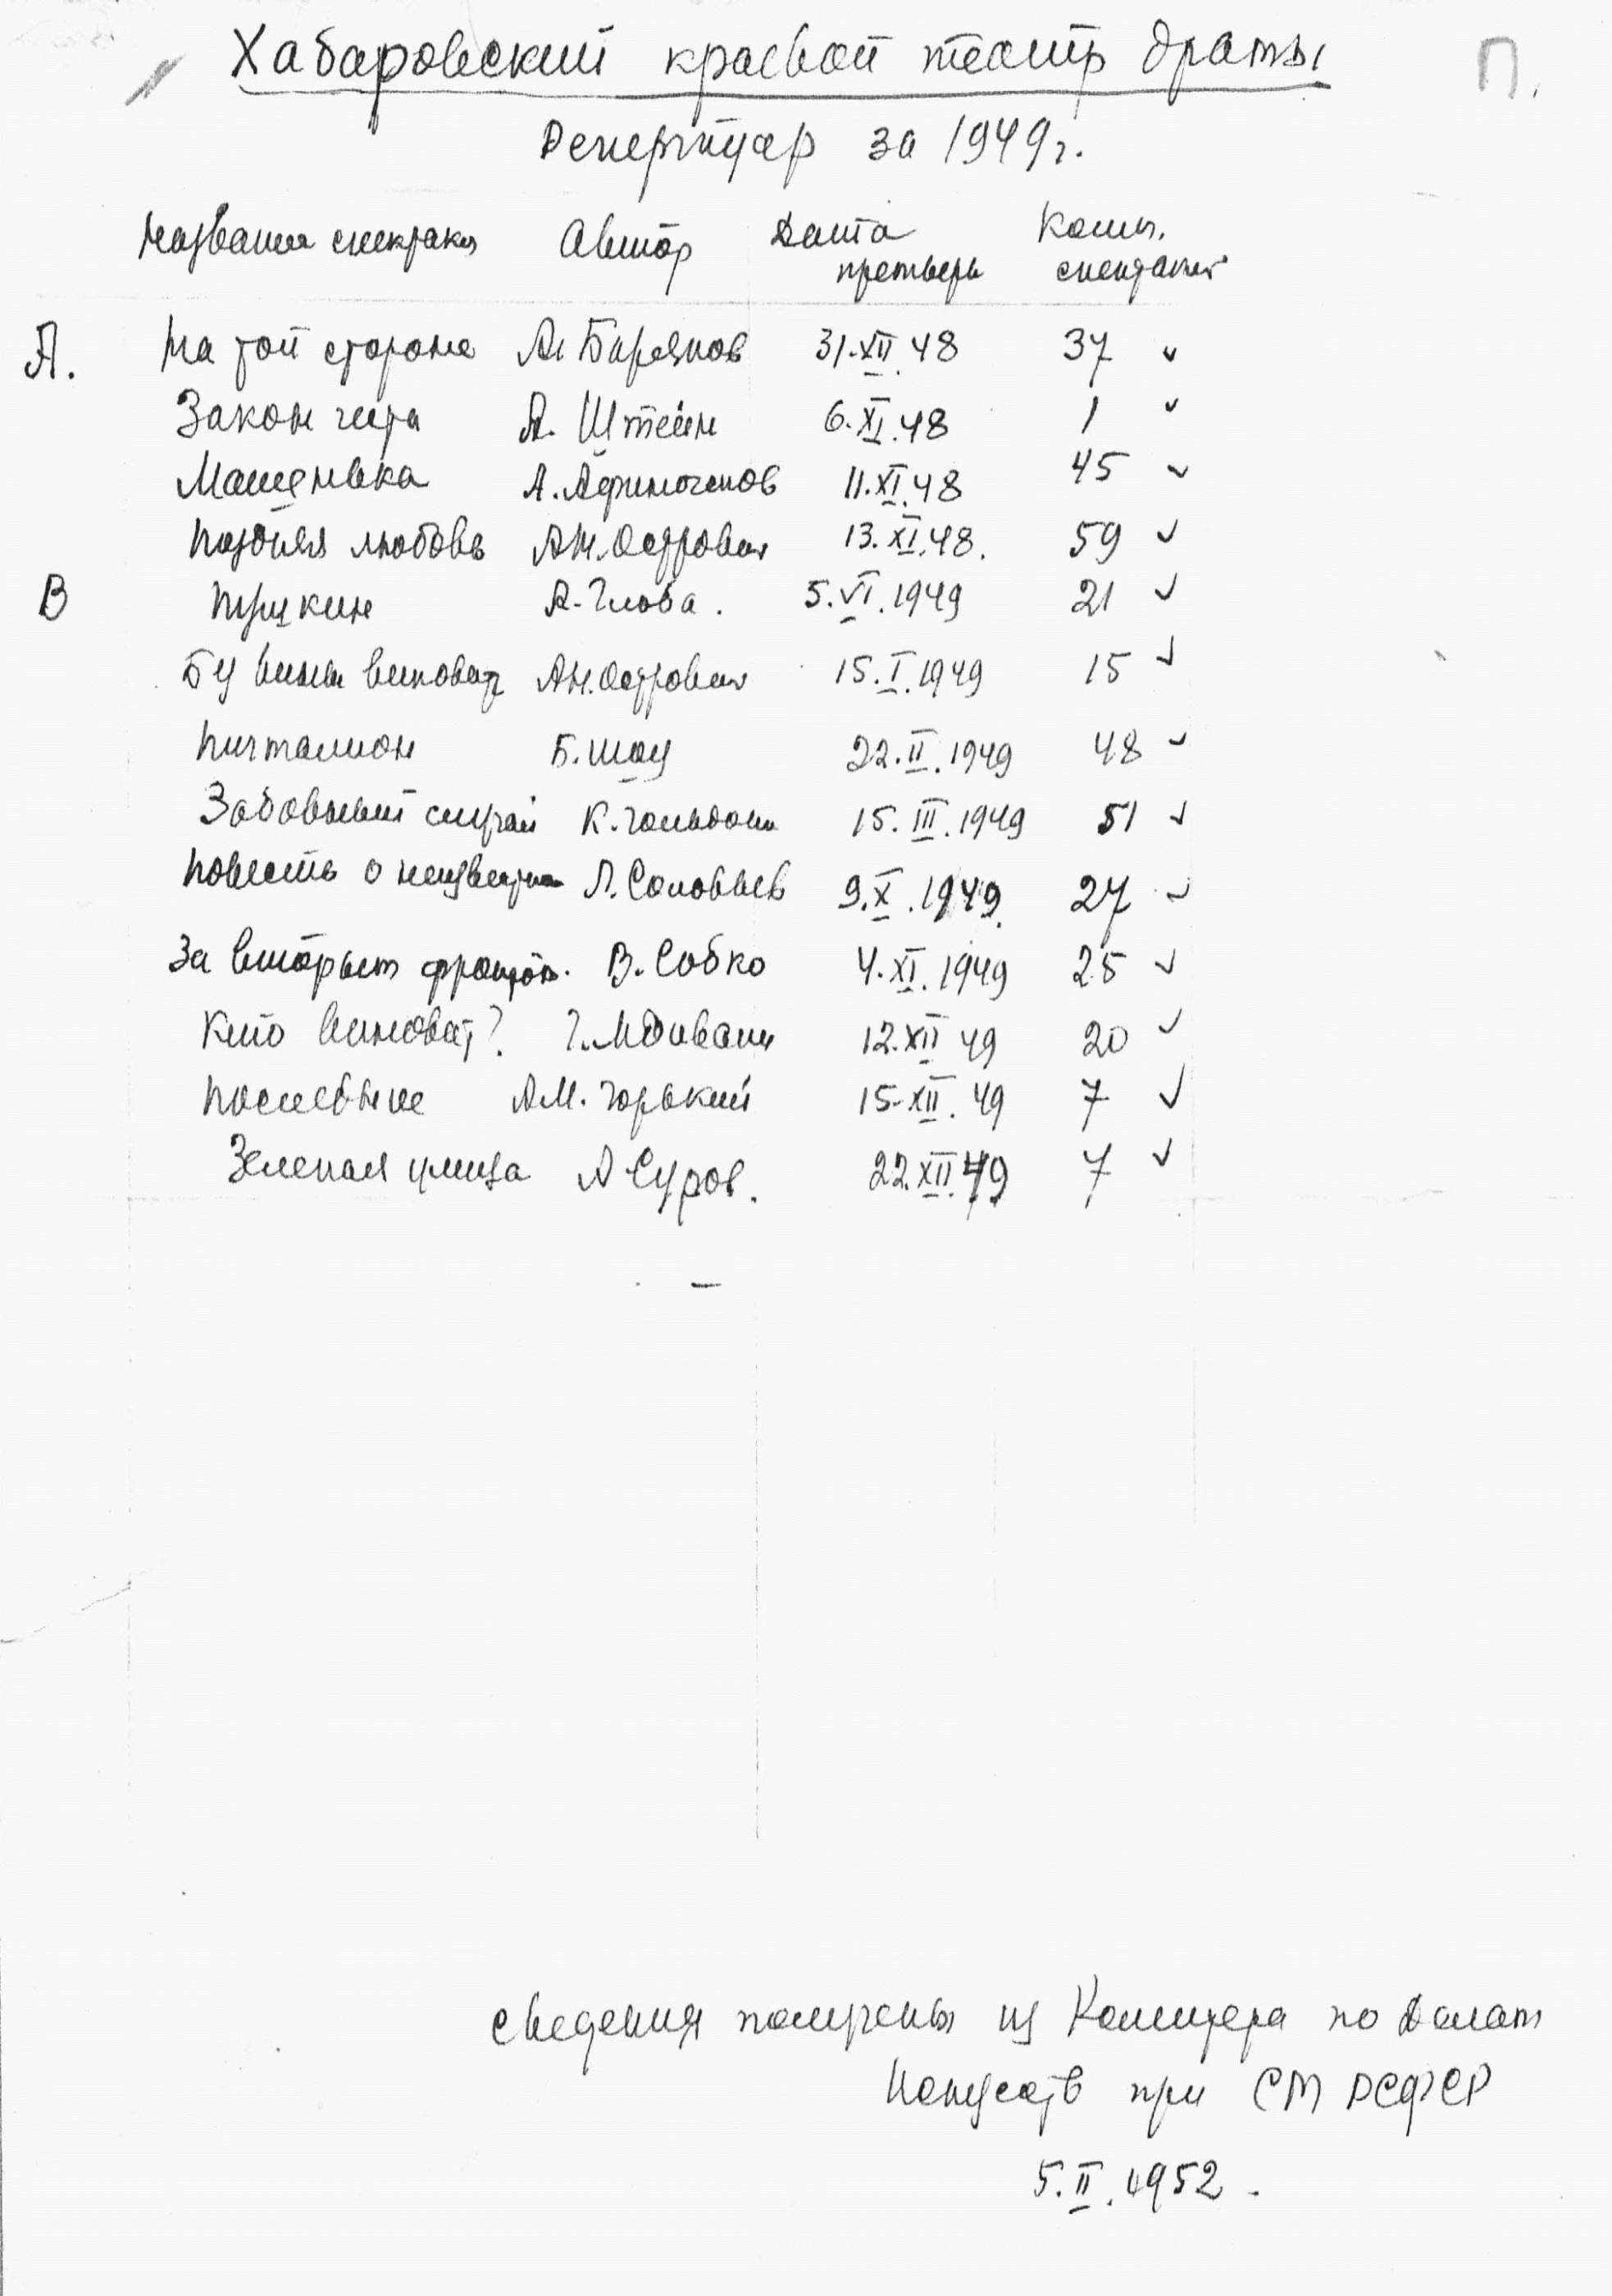 Хабаровский краевой театр драмы
П.
Репертуар за 1949г.
Название спектакля Автор Дата премьеры Колич. спектаклей
А. На той стороне А. Барянов 31.XII.48 37
Закон чести А. Штейн 6.XI.48 1
Машенька А. Афиногенов 11.XI.48 45
Поздняя любовь А.Н. Островский 13.XI.48. 59
В Пушкин А. Глоба. 5.VI.1949 21
Без вины виноват А.Н. Островский 15.I.1949 15
Пигмалион Б. Шоу 22.II.1949 48
Забавный случай К. Гольдони 15.III.1949 51
Повесть о неизвестном Л. Соловьев 9.X.1949. 27
За вторым фронтом. В. Собко 4.XI.1949 25
Кто виноват? Г. Мдивани 12.XII 49 20
Последние А.М. Горький 15.XII.49 7
Зеленая улица А Суров. 22.XII.49 7
Сведения получены из Комитета по делам
Искусств при СМ РСФСР
5.II.1952.